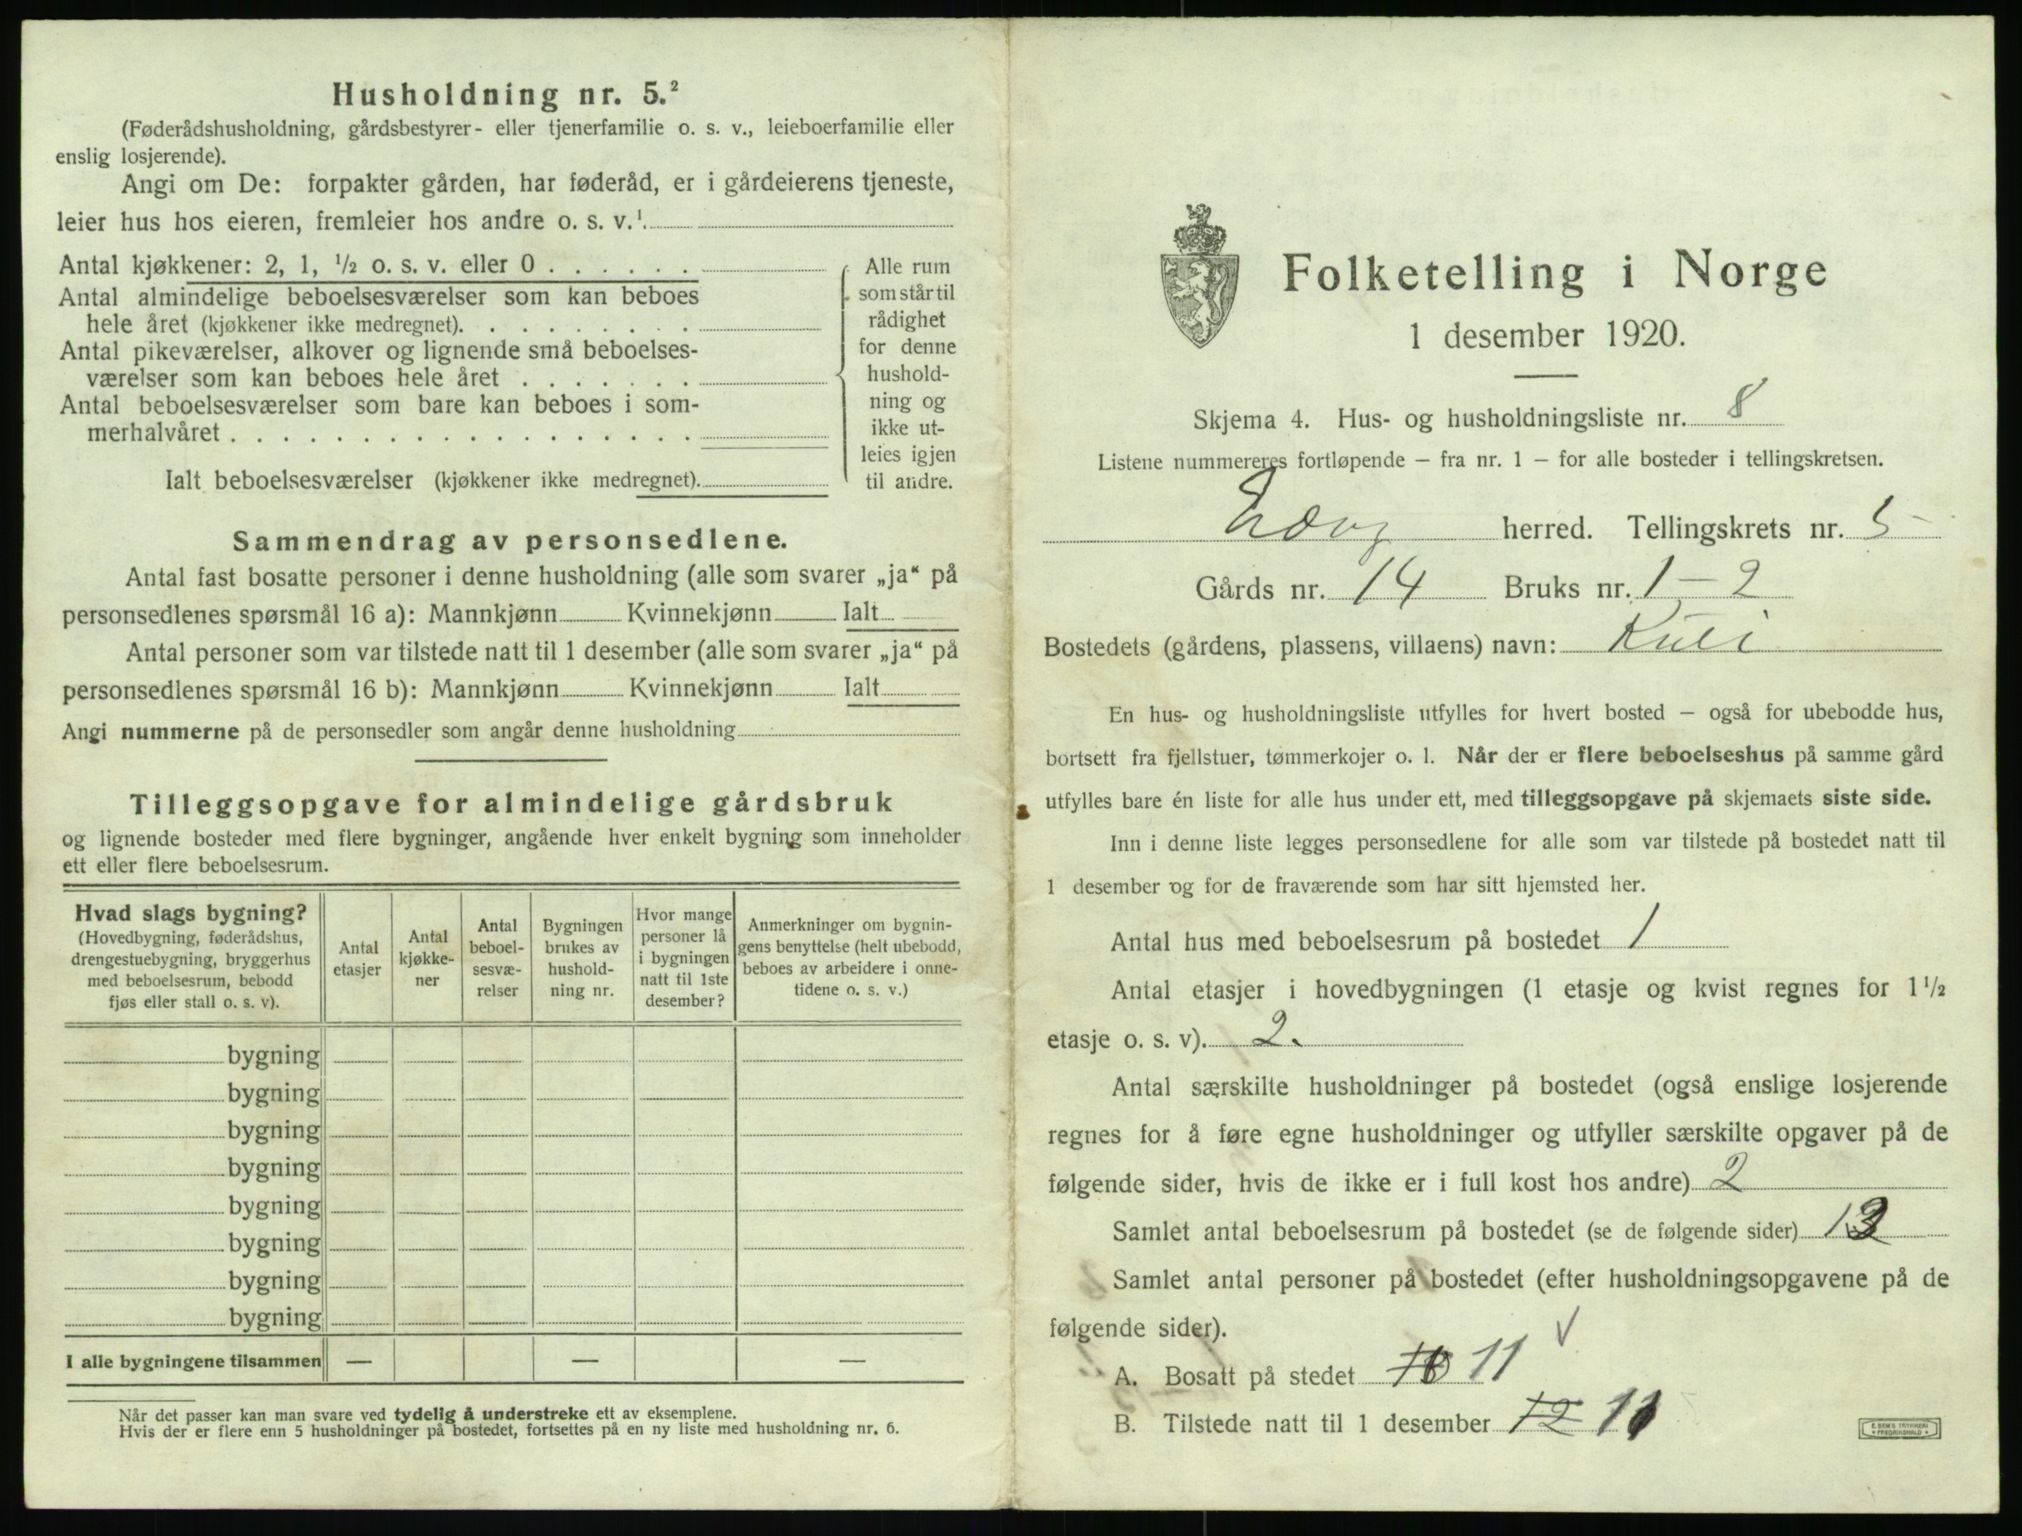 Husholdning nr. 5.²
(Føderådshusholdning, gårdsbestyrer- eller tjenerfamilie o. s. v., leieboerfamilie eller
enslig losjerende).
Angi om De: forpakter gården, har føderåd, er i gårdeierens tjeneste,
leier hus hos eieren, fremleier hos andre o. s. v.¹
Antal kjøkkener: 2, 1, ½ o. s. v. eller 0 . . . . . .
Antal almindelige beboelsesværelser som kan beboes
hele året (kjøkkener ikke medregnet). . . . . . . . .
Antal pikeværelser, alkover og lignende små beboelses-
værelser som kan beboes hele året . . . . . . .
Antal beboelsesværelser som bare kan beboes i som-
merhalvåret . . . . . . . . . . . . . . . . . .
Ialt beboelsesværelser (kjøkkener ikke medregnet).
Alle rum
som står til
rådighet
for denne
hushold-
ning og
ikke ut-
leies igjen
til andre.
Sammendrag av personsedlene.
Antal fast bosatte personer i denne husholdning (alle som svarer „ja“ på
personsedlenes spørsmål 16 a): Mannkjønn Kvinnekjønn Ialt
Antal personer som var tilstede natt til 1 desember (alle som svarer „ja“ på
personsedlenes spørsmål 16 b): Mannkjønn Kvinnekjønn Ialt
Angi nummerne på de personsedler som angår denne husholdning
Tilleggsopgave for almindelige gårdsbruk
og lignende bosteder med flere bygninger, angående hver enkelt bygning som inneholder
ett eller flere beboelsesrum.
Hvad slags bygning?
(Hovedbygning, føderådshus,
drengestuebygning, bryggerhus
med beboelsesrum, bebodd
fjøs eller stall o. s. v).
Antal
etasjer
Antal
kjøkke-
ner
Antal
beboel-
sesvæ-
relser
Bygningen
brukes av
hushold-
ning nr.
Hvor mange
personer lå
i bygningen
natt til 1ste
desember?
Anmerkninger om bygnin-
gens benyttelse (helt ubebodd,
beboes av arbeidere i onne-
tidene o. s. v.)
bygning
bygning
bygning
bygning
bygning
bygning
bygning
bygning
I alle bygningene tilsammen — — —
Når det passer kan man svare ved tydelig å understreke ett av eksemplene.
Hvis der er flere enn 5 husholdninger på bostedet, fortsettes på en ny liste med husholdning nr. 6.
Folketelling i Norge
1 desember 1920.
Skjema 4. Hus- og husholdningsliste nr. 8
Listene nummereres fortløpende — fra nr. 1 — for alle bosteder i tellingskretsen.
herred. Tellingskrets nr. 5
Gårds nr. 14 Bruks nr. 1-2
Bostedets (gårdens, plassens, villaens) navn: Kuli
En hus- og husholdningsliste utfylles for hvert bosted — også for ubebodde hus,
bortsett fra fjellstuer, tømmerkojer o. l. Når der er flere beboelseshus på samme gård
utfylles bare én liste for alle hus under ett, med tilleggsopgave på skjemaets siste side.
Inn i denne liste legges personsedlene for alle som var tilstede på bostedet natt til
1 desember og for de fraværende som har sitt hjemsted her.
Antal hus med beboelsesrum på bostedet 1
Antal etasjer i hovedbygningen (1 etasje og kvist regnes for 1½
etasje o. s. v). 2.
Antal særskilte husholdninger på bostedet (også enslige losjerende
regnes for å føre egne husholdninger og utfyller særskilte opgaver på de
følgende sider, hvis de ikke er i full kost hos andre) 2
Samlet antal beboelsesrum på bostedet (se de følgende sider)
Samlet antal personer på bostedet (efter husholdningsopgavene på de
følgende sider).
A. Bosatt på stedet 11 √
B. Tilstede natt til 1 desember 12 11
E. SEM'S TRYKKERI
FREDRIKSHALD